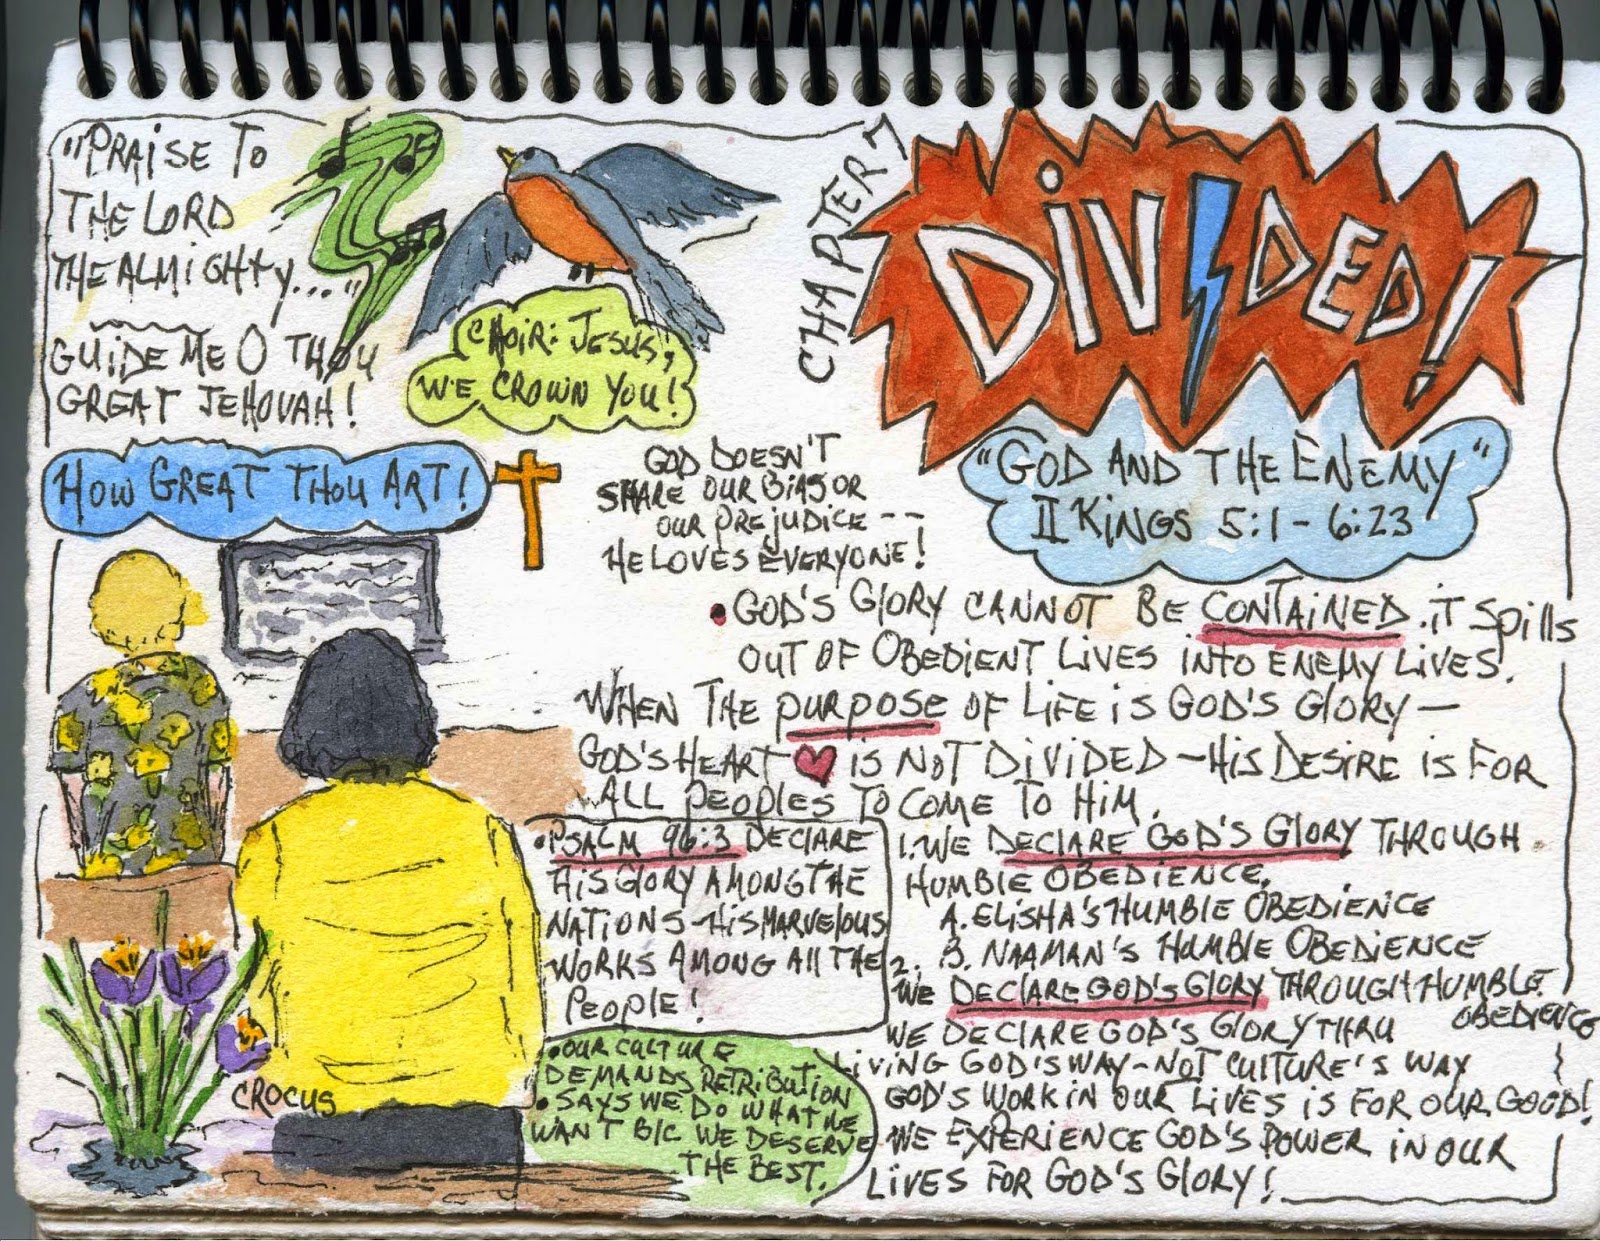 "PRAISE TO
THE LORD
THE ALMIGHTY..."
GUIDE ME O THOU
GREAT JEHOVAH!
CHOIR: JESUS,
WE CROWN YOU!
HOW GREAT THOU ART!
CHAPTER 7
DIVIDED!
"GOD AND THE ENEMY"
II KINGS 5:1-6:23
GOD DOESN'T
SHARE OUR BIAS OR
OUR PREJUDICE --
HE LOVES EVERYONE!
• GOD'S GLORY CANNOT BE CONTAINED. IT SPILLS
OUT OF OBEDIENT LIVES INTO ENEMY LIVES.
WHEN THE PURPOSE OF LIFE IS GOD'S GLORY—
GOD'S HEART ♥ IS NOT DIVIDED—HIS DESIRE IS FOR
ALL PEOPLES TO COME TO HIM.
• PSALM 96:3 DECLARE
HIS GLORY AMONG THE
NATIONS-HIS MARVELOUS
WORKS AMONG ALL THE
PEOPLE!
1. WE DECLARE GOD'S GLORY THROUGH
HUMBLE OBEDIENCE.
A. ELISHA'S HUMBLE OBEDIENCE
B. NAAMAN'S HUMBLE OBEDIENCE
2. WE DECLARE GOD'S GLORY THROUGH HUMBLE
OBEDIENCE
WE DECLARE GOD'S GLORY THRU
LIVING GOD'S WAY-NOT CULTURE'S WAY
GOD'S WORK IN OUR LIVES IS FOR OUR GOOD!
WE EXPERIENCE GOD'S POWER IN OUR
LIVES FOR GOD'S GLORY!
• OUR CULTURE
DEMANDS RETRIBUTION
• SAYS WE DO WHAT WE
WANT B/C WE DESERVE
THE BEST.
CROCUS